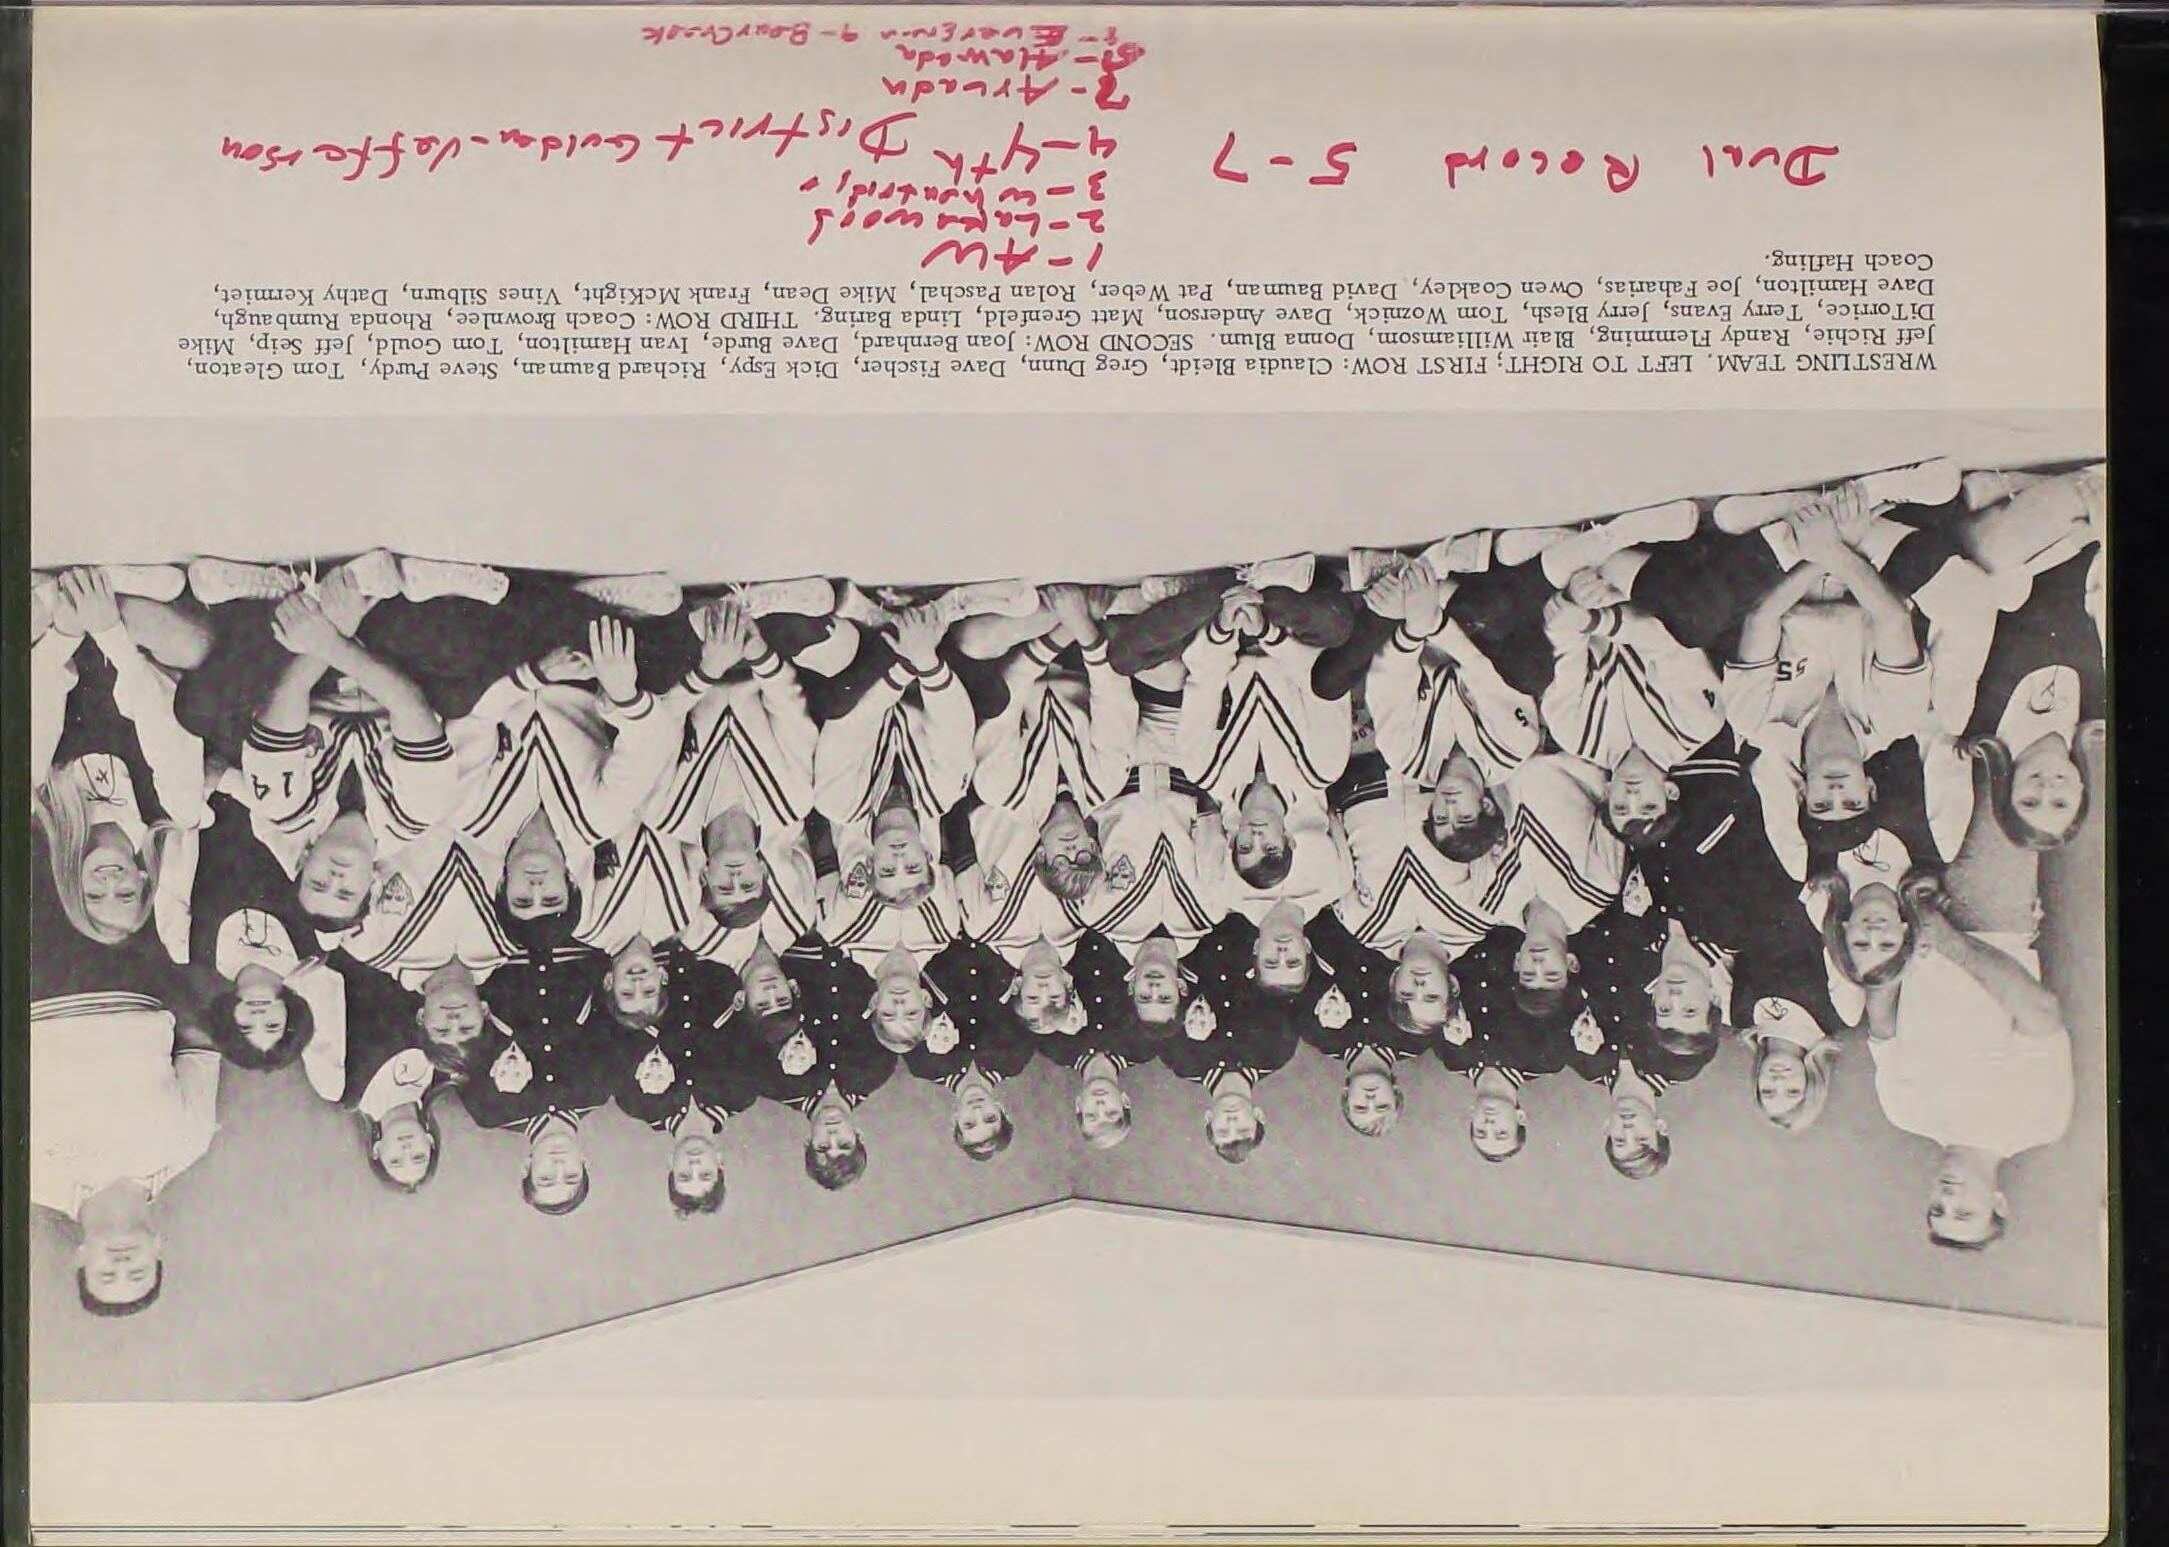 WRESTLING TEAM. LEFT TO RIGHT; FIRST ROW: Claudia Bleidt, Greg Dunn, Dave Fischer, Dick Espy, Richard Bauman, Steve Purdy, Tom Gleaton,
Jeff Richie, Randy Flemming, Blair Williamsom, Donna Blum. SECOND ROW: Joan Bernhard, Dave Burde, Ivan Hamilton, Tom Gould, Jeff Seip, Mike
DiTorrice, Terry Evans, Jerry Blesh, Tom Woznick, Dave Anderson, Matt Grenfeld, Linda Baring. THIRD ROW: Coach Brownlee, Rhonda Rumbaugh,
Dave Hamilton, Joe Faharias, Owen Coakley, David Bauman, Pat Weber, Rolan Paschal, Mike Dean, Frank McKight, Vines Silburn, Dathy Kermiet,
Coach Hafling.
1- AW
2- Lakewood
3- Wheatridge
Dual Record 5-7
4- 4th District Golden - Jefferson
- Arvada
- Alameda
- Evergreen 9- Bear Creek
55
4
5
14